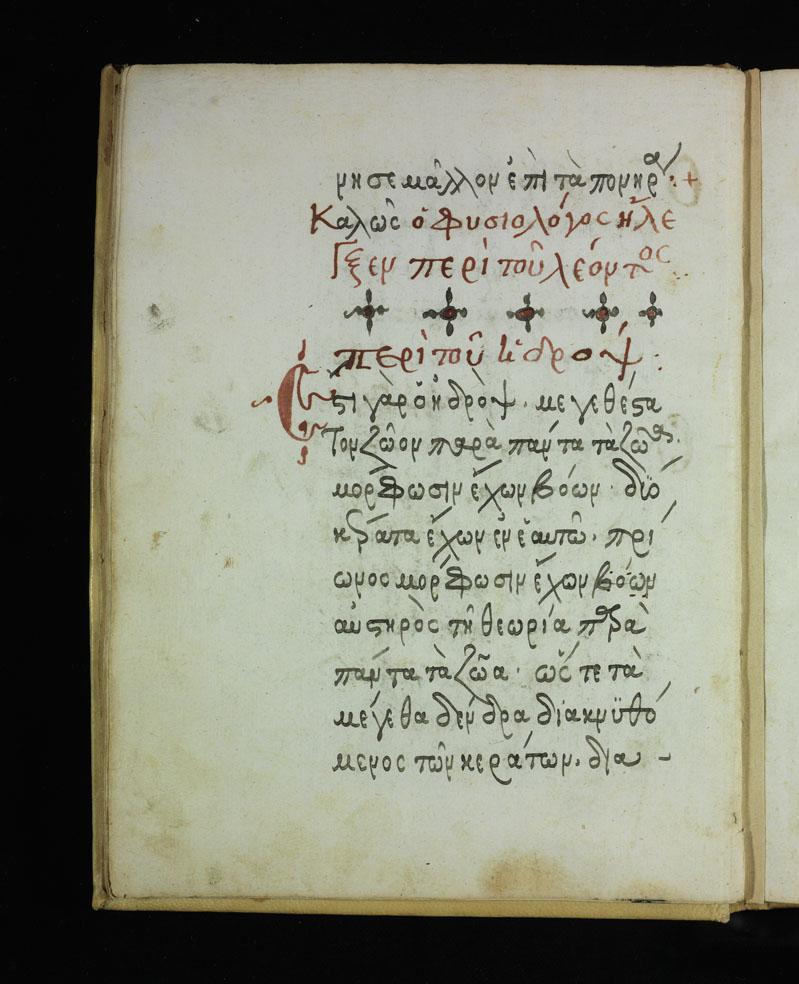 νησε μάλλον ἐπὶ τὰ πονηρά·+
Καλῶς ὁ Φυσιολόγος ἤλε
Γξεν περὶ τοῦ λέοντος
περὶ τοῦ ὕδροψ·
Ἔστι γὰρ ὁ ὑδρὸψ· μεγεθέστα
τον ζῶον παρὰ πάντα τὰ ζῶα·
μόρφωσιν ἔχων βόων· δϊό
κέρατα ἔχων ἐν ἑαυτῶ· πρί
ωνος μόρφωσιν ἔχων βόων
αὐστηρὸς τῆ θεωρία παρὰ
πάντα τὰ ζῶα· ὥς τε τὰ
μέγεθα δένδρα διακνϋθό
μενος τῶν κεράτων· δια